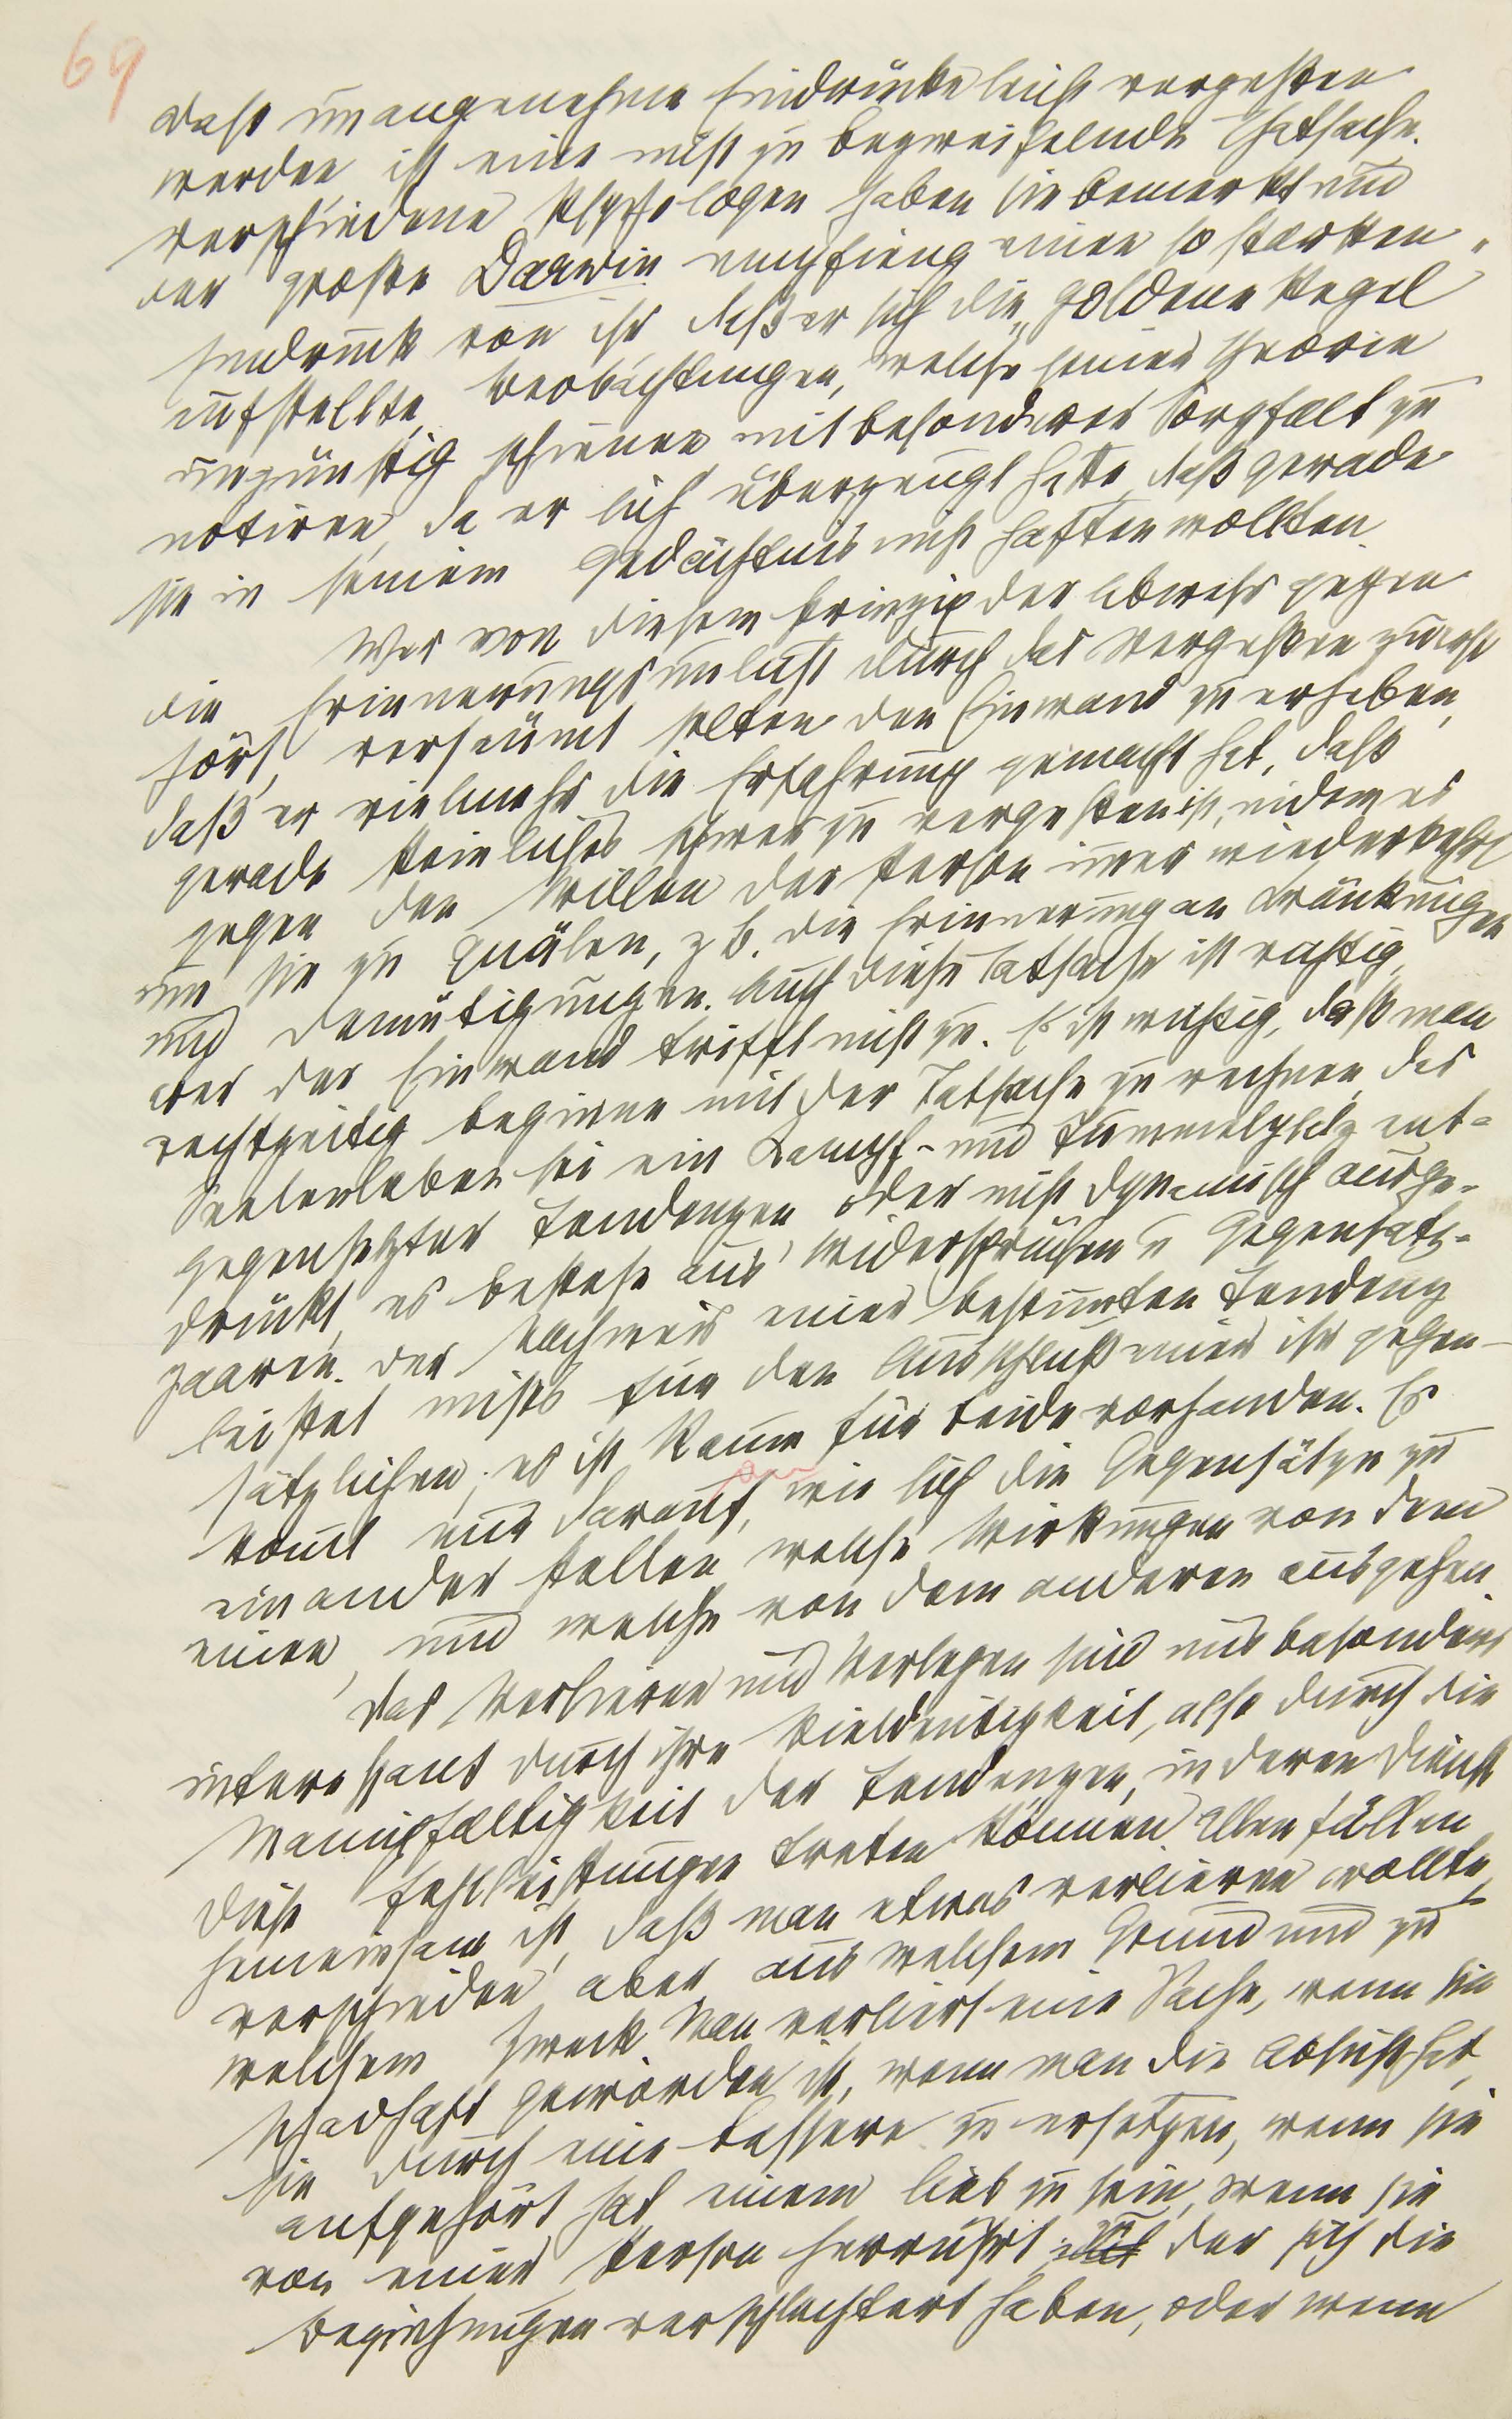 69
Daß unangenehme Eindrücke leicht vergessen
werden, ist eine nicht zu bezweifelnde Thatsache.
Verschiedene Psychologen haben sie bemerkt und
der große Darwin empfieng einen so starken
Eindruck von ihr, daß er sich die „goldene Regel"
aufstellte, Beobachtungen, welche seiner Theorie
ungünstig schienen mit besonderer Sorgfalt zu
notiren, da er sich überzeugt hatte, daß gerade
sie in seinem Gedächtnis nicht haften wollten.
Wer von diesem Prinzip der Abwehr gegen
die Erinnerungsunlust durch das Vergessen zuerst
hört, versäumt selten den Einwand zu erheben,
daß er vielmehr die Erfahrung gemacht hat, daß
gerade Peinliches schwer zu vergessen ist, indem es
gegen den Willen der Person immer wiederkehrt
um sie zu quälen, z b. die Erinnerung an Kränkungen
und Demütigungen. Auch diese Tatsache ist richtig,
aber der Einwand trifft nicht zu. Es ist wichtig, daß man
rechtzeitig beginne mit der Tatsache zu rechnen, das
Seelenleben sei ein Kampf- und Tummelplatz ent-
gegensetzter Tendenzen oder nicht dynamisch ausge-
drückt, es bestehe aus Widersprüchen u Gegensatz-
paaren. Der Nachweis einer bestimmten Tendenz
leistet nichts für den Ausschluß einer ihr gegen-
sätzlichen; es ist Raum für beide vorhanden. Es
kommt nur darauf an, wie sich die Gegensätze zu
einander stellen, welche Wirkungen von dem
einen, und welche von dem anderen ausgehen.
Das Verlieren und Verlegen sind uns besonders
interessant durch ihre Vieldeutigkeit, also durch die
Mannigfaltigkeit der Tendenzen, in deren Dienst
diese Fehlleistungen treten können. Allen Fällen
gemeinsam ist, daß man etwas verlieren wollte,
verschieden aber, aus welchem Grund und zu
welchem Zweck. Man verliert eine Sache, wenn sie
schadhaft geworden ist, wenn man die Absicht hat,
sie durch eine bessere zu ersetzen, wenn sie
aufgehört hat einem lieb zu sein, wenn sie
von einer Person herrührt, zu der sich die
Beziehungen verschlechtert haben, oder wenn